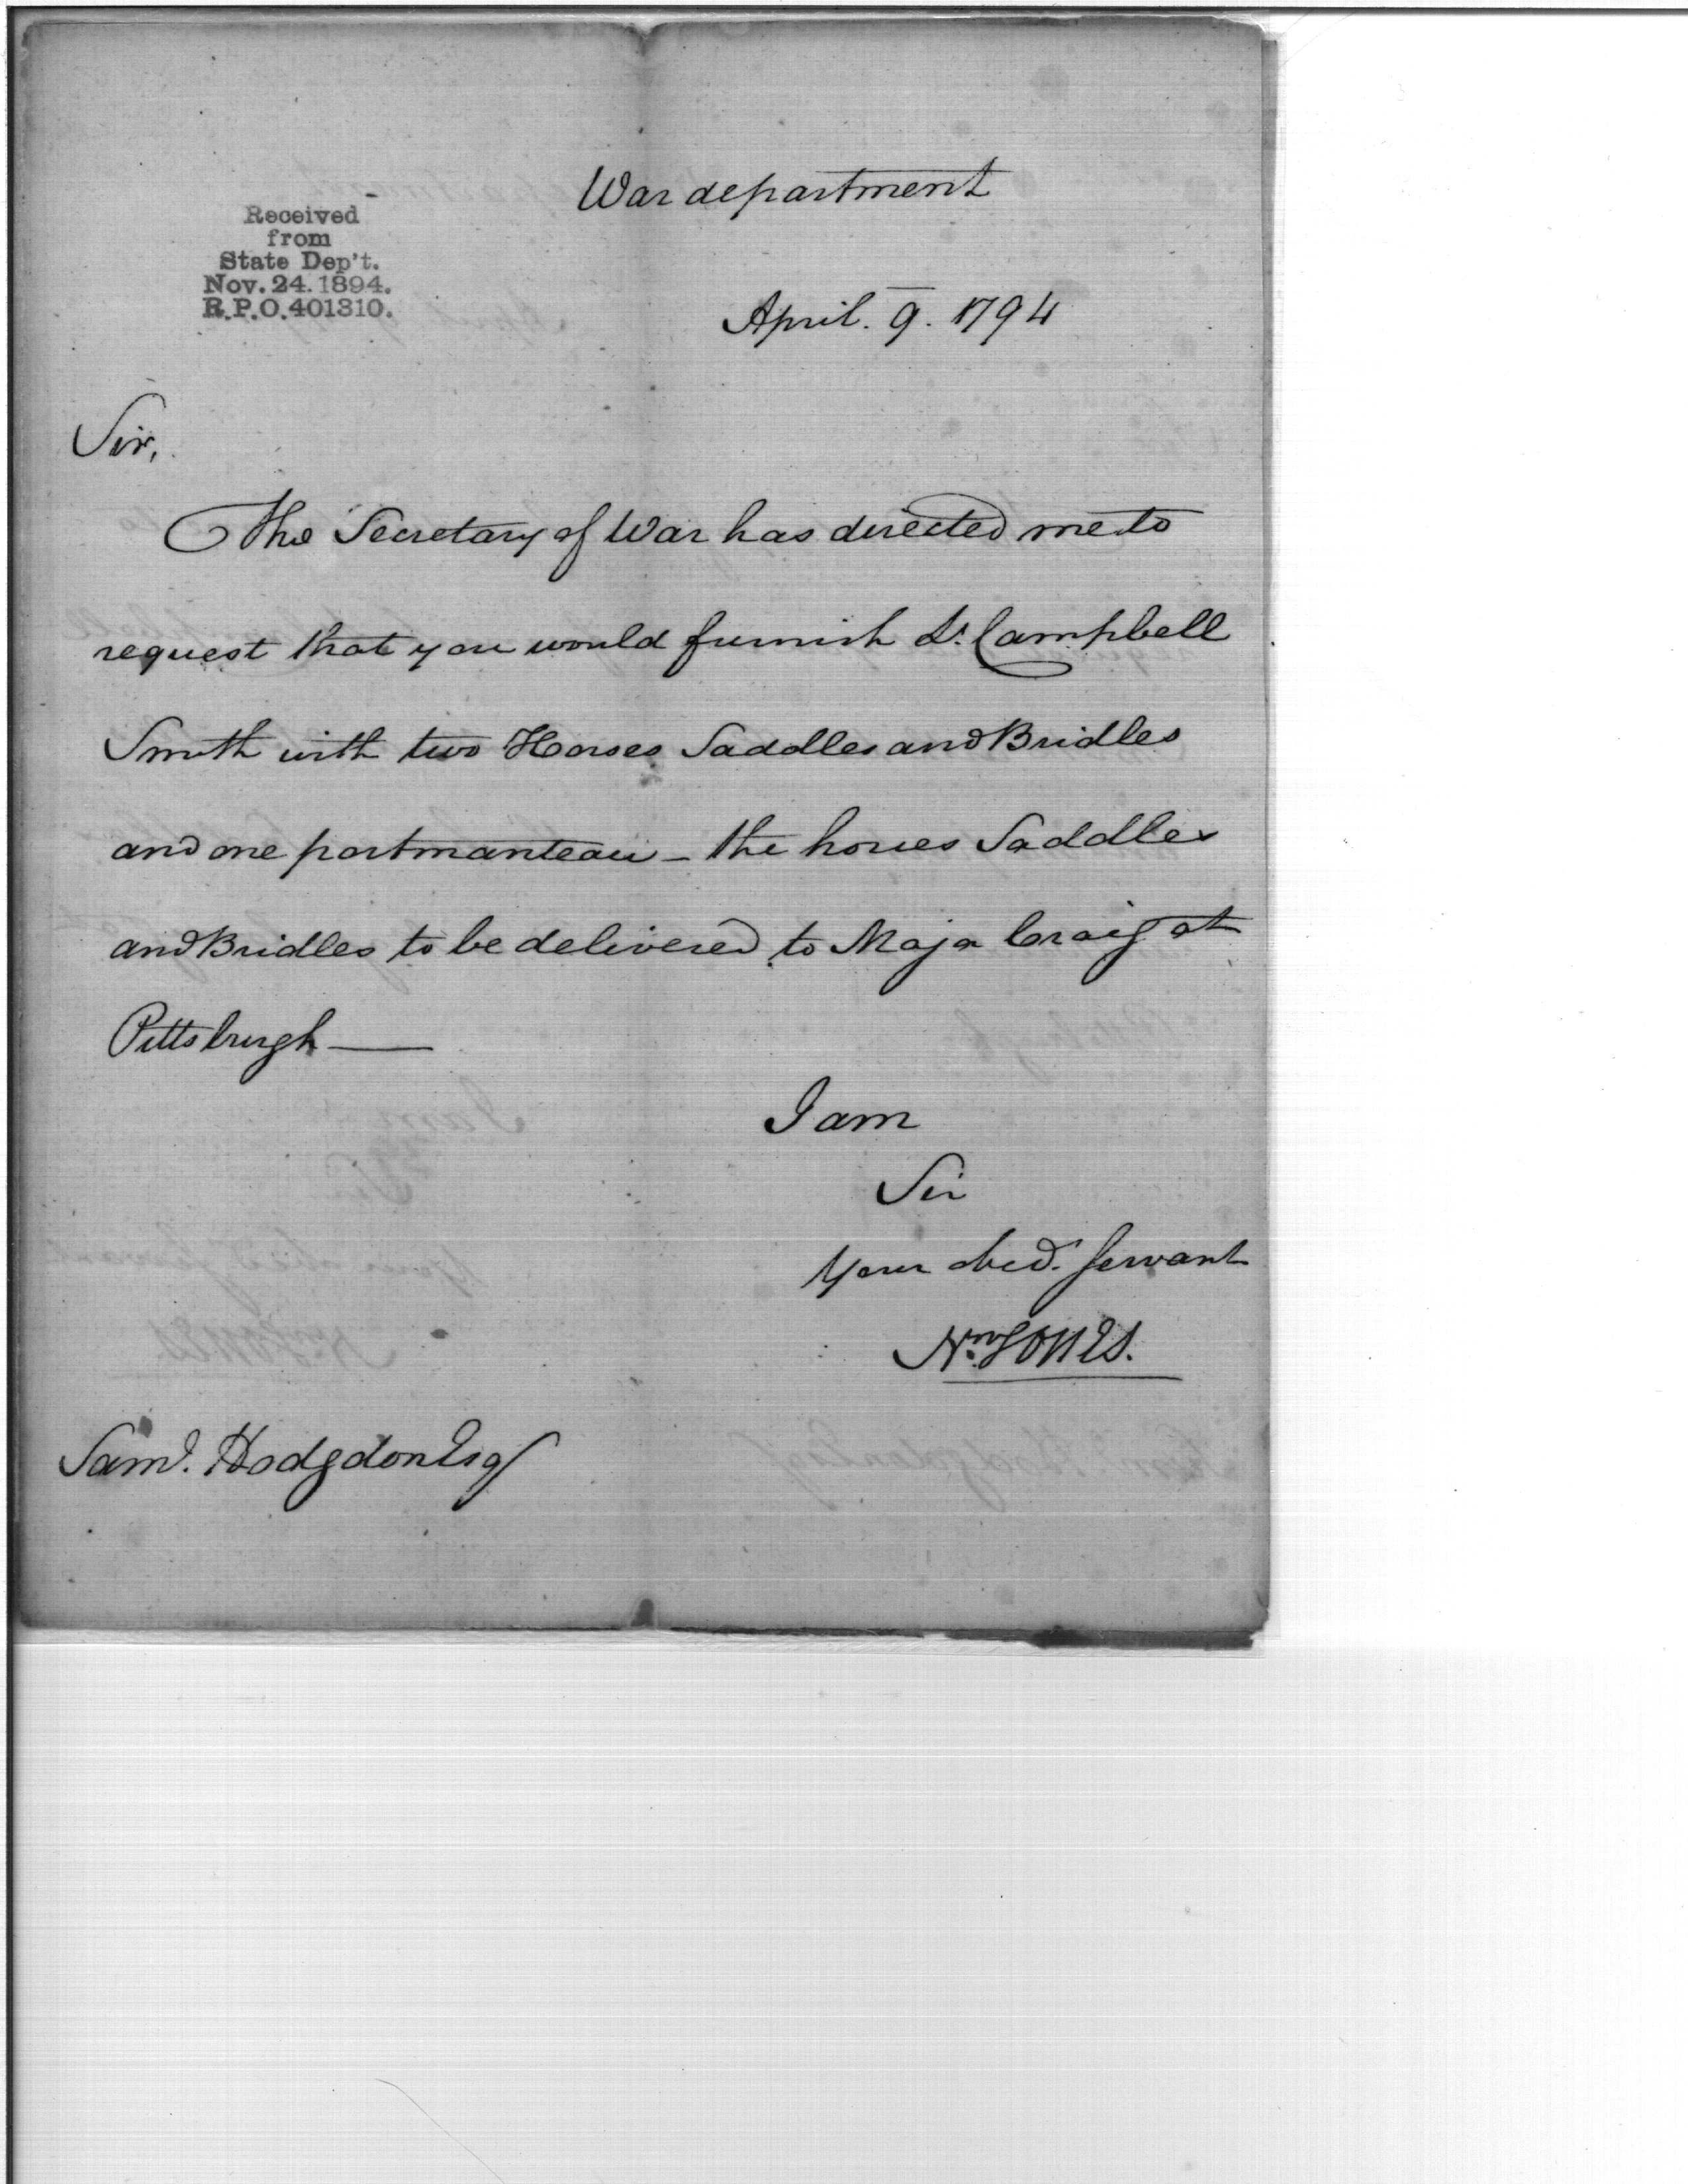 War department
Received
from
State Dep't.
Nov. 24. 1894.
R.P.O. 401310.
April. 9. 1794
Sir,
The Secretary of War has directed me to
request that you would furnish Lt. Campbell
Smith with two Horses Saddles and Bridles
and one portmanteau - the horses Saddles
and Bridles to be delivered to Majr Craig at
Pittsburgh —
I am
Sir
Your obed. Servant
Jones.
Saml. Hodgdon Esq